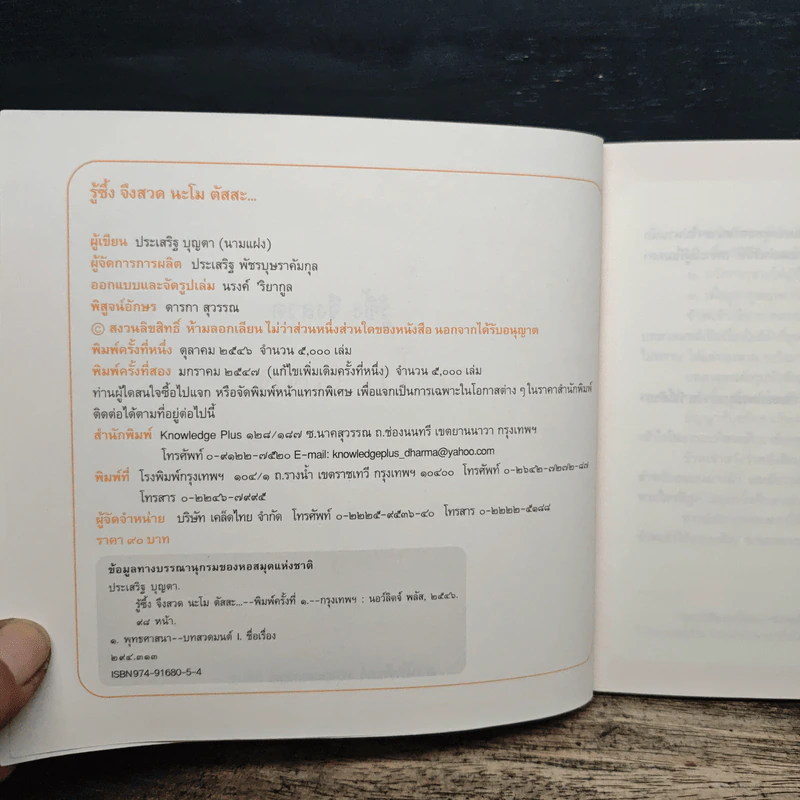 รู้ซึ้ง จึงสวด นะโม ตัสสะ...
ผู้เขียน ประเสริฐ บุญตา (นามแฝง)
ผู้จัดการการผลิต ประเสริฐ พัชรบุษราคัมกุล
ออกแบบและจัดรูปเล่ม นรงค์ 'ริยากูล
พิสูจน์อักษร ดารกา สุวรรณ
© สงวนลิขสิทธิ์ ห้ามลอกเลียน ไม่ว่าส่วนหนึ่งส่วนใดของหนังสือ นอกจากได้รับอนุญาต
พิมพ์ครั้งที่หนึ่ง ตุลาคม ๒๕๔๖ จำนวน ๕,๐๐๐ เล่ม
พิมพ์ครั้งที่สอง มกราคม ๒๕๔๗ (แก้ไขเพิ่มเติมครั้งที่หนึ่ง) จำนวน ๕,๐๐๐ เล่ม
ท่านผู้ใดสนใจซื้อไปแจก หรือจัดพิมพ์หน้าแทรกพิเศษ เพื่อแจกเป็นการเฉพาะในโอกาสต่าง ๆ ในราคาสำนักพิมพ์
ติดต่อได้ตามที่อยู่ต่อไปนี้
สำนักพิมพ์ Knowledge Plus ๑๒๘/๑๘๗ ซ.นาคสุวรรณ ถ.ช่องนนทรี เขตยานนาวา กรุงเทพฯ
โทรศัพท์ ๐-๙๑๒๒-๗๕๒๐ E-mail: knowledgeplus_dharma@yahoo.com
พิมพ์ที่ โรงพิมพ์กรุงเทพฯ ๑๐๔/๑ ถ.รางน้ำ เขตราชเทวี กรุงเทพฯ ๑๐๔๐๐ โทรศัพท์ ๐-๒๖๔๒-๗๒๗๒-๘๗
โทรสาร ๐-๒๒๔๖-๗๙๙๕
ผู้จัดจำหน่าย บริษัท เคล็ดไทย จำกัด โทรศัพท์ ๐-๒๒๒๕-๙๕๓๖-๔๐ โทรสาร ๐-๒๒๒๒-๕๑๘๘
ราคา ๙๐ บาท
ข้อมูลทางบรรณานุกรมของหอสมุดแห่งชาติ
ประเสริฐ บุญตา.
รู้ซึ้ง จึงสวด นะโม ตัสสะ...--พิมพ์ครั้งที่ ๑.--กรุงเทพฯ : นอว์ลิดจ์ พลัส, ๒๕๔๖.
๙๘ หน้า.
๑. พุทธศาสนา--บทสวดมนต์ I. ชื่อเรื่อง
๒๙๔.๓๑๓
ISBN974-91680-5-4